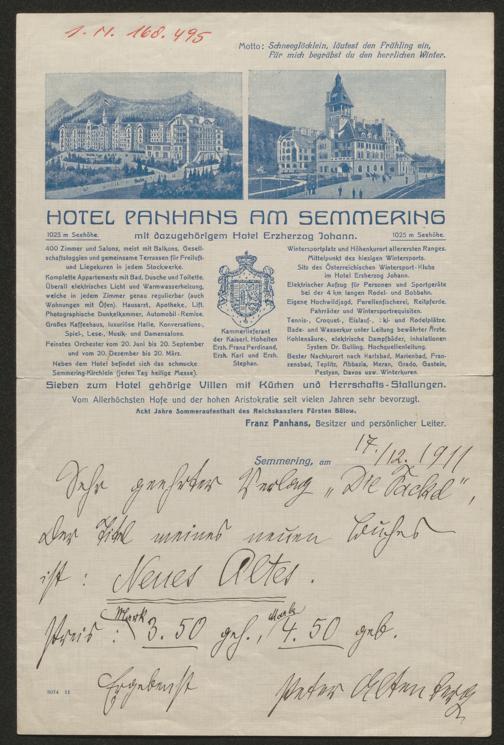 I. N. 168.495
Motto: Schneeglöcklein, läutest den Frühling ein,
Für mich begräbst du den herrlichen Winter.
HOTEL PANHANS AM SEMMERING
1025 m Seehöhe. mit dazugehörigem Hotel Erzherzog Johann. 1025 m Seehöhe.
400 Zimmer und Salons, meist mit Balkons, Gesell-
schaftsloggien und gemeinsame Terrassen für Freiluft-
und Liegekuren in jedem Stockwerke.
Komplette Appartements mit Bad, Dusche und Toilette.
Überall elektrisches Licht und Warmwasserheizung,
welche in jedem Zimmer genau regulierbar (auch
Wohnungen mit Öfen). Hausarzt, Apotheke, Lift,
Photographische Dunkelkammer, Automobil-Remise.
Großes Kaffeehaus, luxuriöse Halle, Konversations-,
Spiel-, Lese-, Musik- und Damensalons.
Feinstes Orchester vom 20. Juni bis 20. September
und vom 20. Dezember bis 20. März.
Neben dem Hotel befindet sich das schmucke
Semmering-Kirchlein (jeden Tag heilige Messe).
Kammerlieferant
der Kaiserl. Hoheiten
Erzh. Franz Ferdinand,
Erzh. Karl und Erzh.
Stephan.
Wintersportplatz und Höhenkurort allerersten Ranges.
Mittelpunkt des hiesigen Wintersports.
Sitz des Österreichischen Wintersport-Klubs
im Hotel Erzherzog Johann.
Elektrischer Aufzug für Personen und Sportgeräte
bei der 4 km langen Rodel- und Bobbahn.
Eigene Hochwildjagd, Forellenfischerei, Reitpferde,
Fahrräder und Wintersportrequisiten.
Tennis-, Croquet-, Eislauf-, Ski- und Rodelplätze.
Bade- und Wasserkur unter Leitung bewährter Ärzte.
Kohlensäure, elektrische Dampfbäder, Inhalationen
System Dr. Bulling. Hochquellenleitung.
Bester Nachkurort nach Karlsbad, Marienbad, Fran-
zensbad, Teplitz, Abbazia, Meran, Grado, Gastein,
Pestyan, Davos usw. Winterkuren.
Sieben zum Hotel gehörige Villen mit Küchen und Herrschafts-Stallungen.
Vom Allerhöchsten Hofe und der hohen Aristokratie seit vielen Jahren sehr bevorzugt.
Acht Jahre Sommeraufenthalt des Reichskanzlers Fürsten Bülow.
Franz Panhans, Besitzer und persönlicher Leiter.
Semmering, am 17./12. 1911
Sehr geehrter Verlag „Die Fackel“,
der Titel meines neuen Buches
ist: Neues Altes.
Preis: Mark 3.50 geh., Mark 4.50 geb.
Ergebenst Peter Altenberg
5074 11